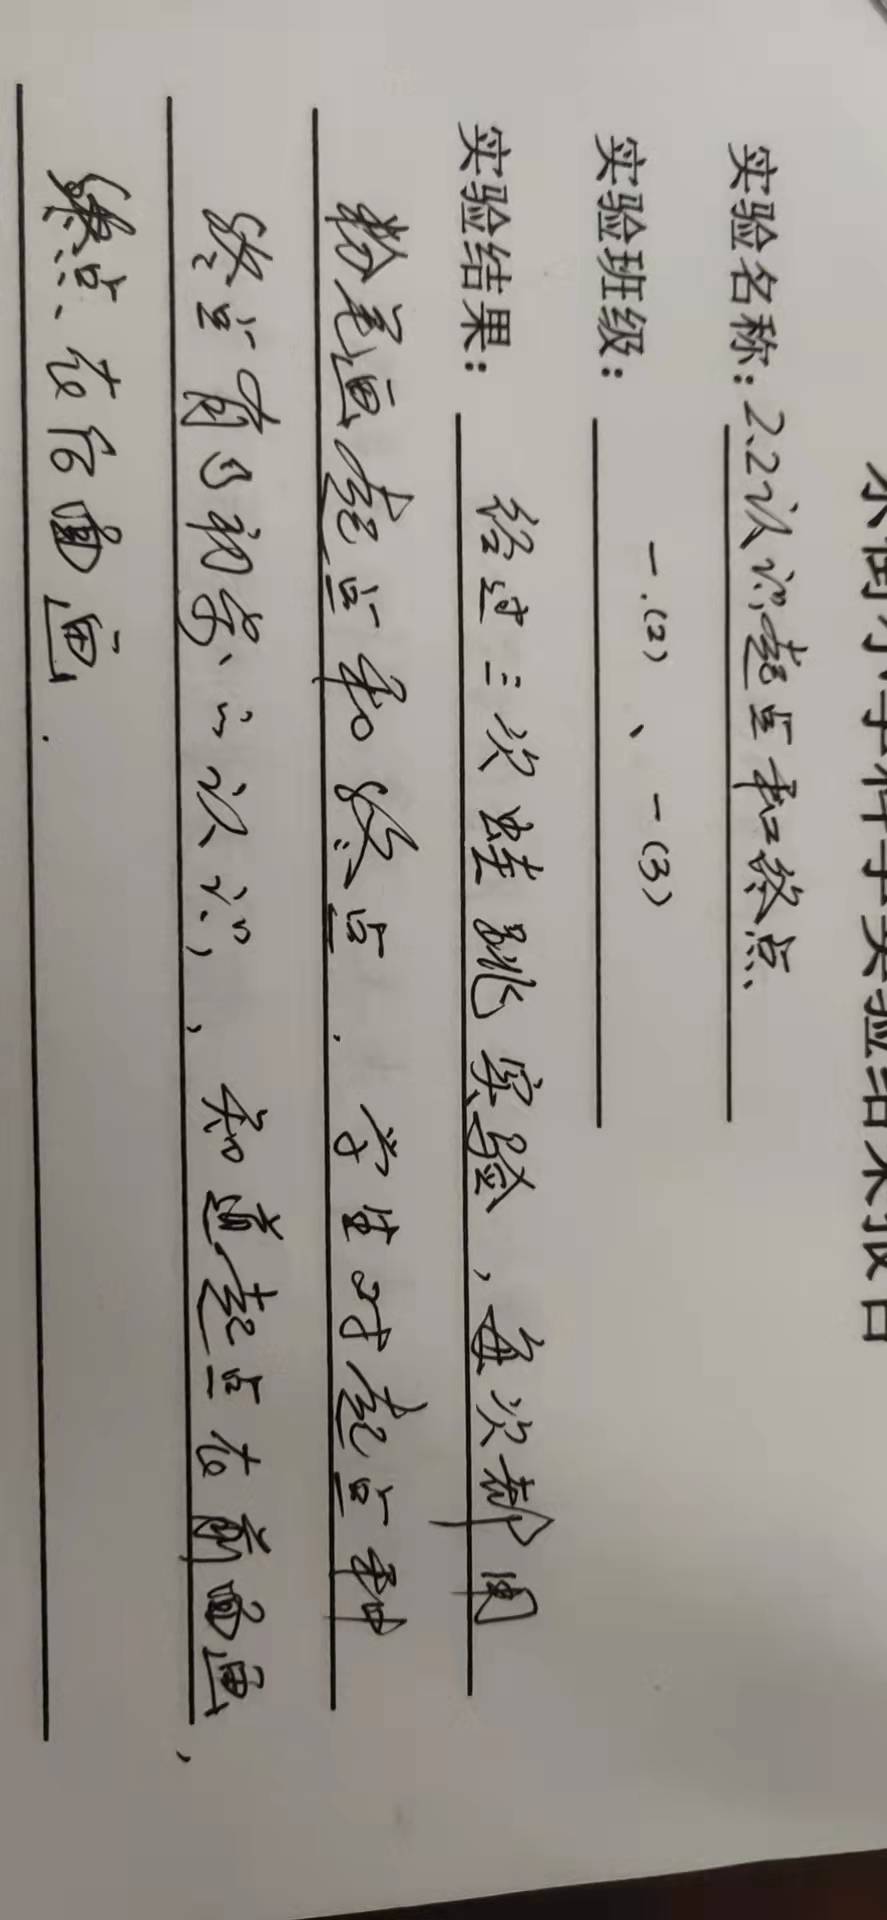 小学科学实验结果报告
实验名称：2.2认识起点和终点
实验班级：一.(2)、一(3)
实验结果：经过三次蛙跳实验，每次都用
粉笔画起点和终点.学生对起点和
终点有了初步的认识，知道起点在前面画，
终点在后面画.